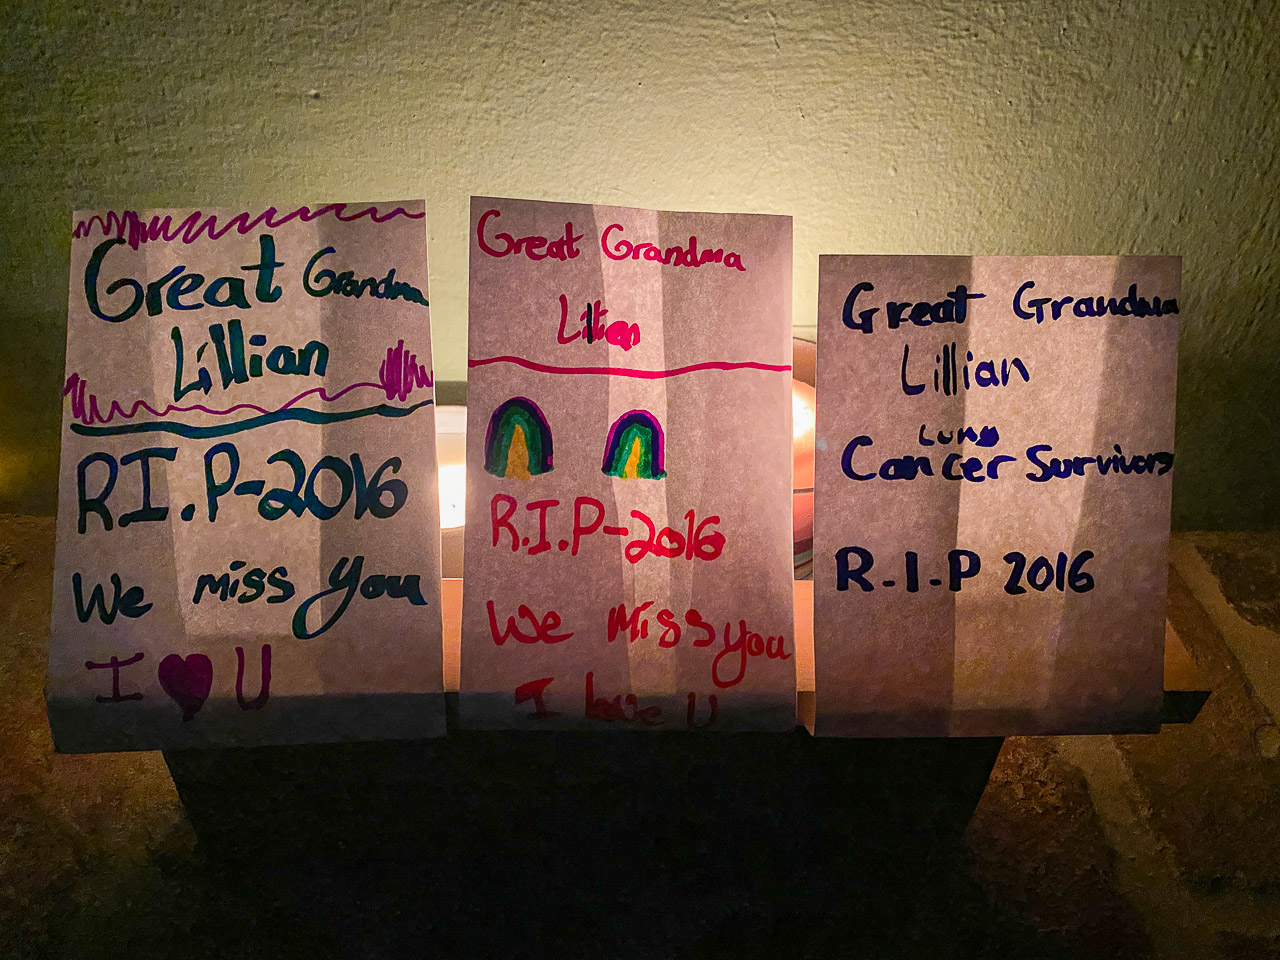 Great Grandma
Lillian
R.I.P-2016
We miss you
I ♥ U
Great Grandma
Lillian
R.I.P-2016
We miss you
I love U
Great Grandma
Lillian
Lung
Cancer Survivors
R-I-P 2016